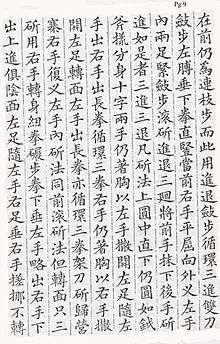 Pg 9
在前仍為連枝步而此用進退斂步循環三進雙刀
斂步左膊垂下拳直豎當前右手平屈向外义左手
內兩足緊斂步滾斫進退三迴將前手抹下後手斫
進如是者三進三退凡斫法上圓中直下仍圓如鉞
斧樣分身十字兩手仍著胸以左手撒開左足隨左
手出右手出長拳循環三拳右手仍著胸以右手撒
開左足轉面左手出長拳亦循環三拳架刀斫歸營
寨右手復义左手內斫法同前滾斫法但轉面只三
斫用右手轉身紐拳碾步拳下垂左手略出右手下
出上進俱陰面左足隨左手右足隨右手搓挪不轉